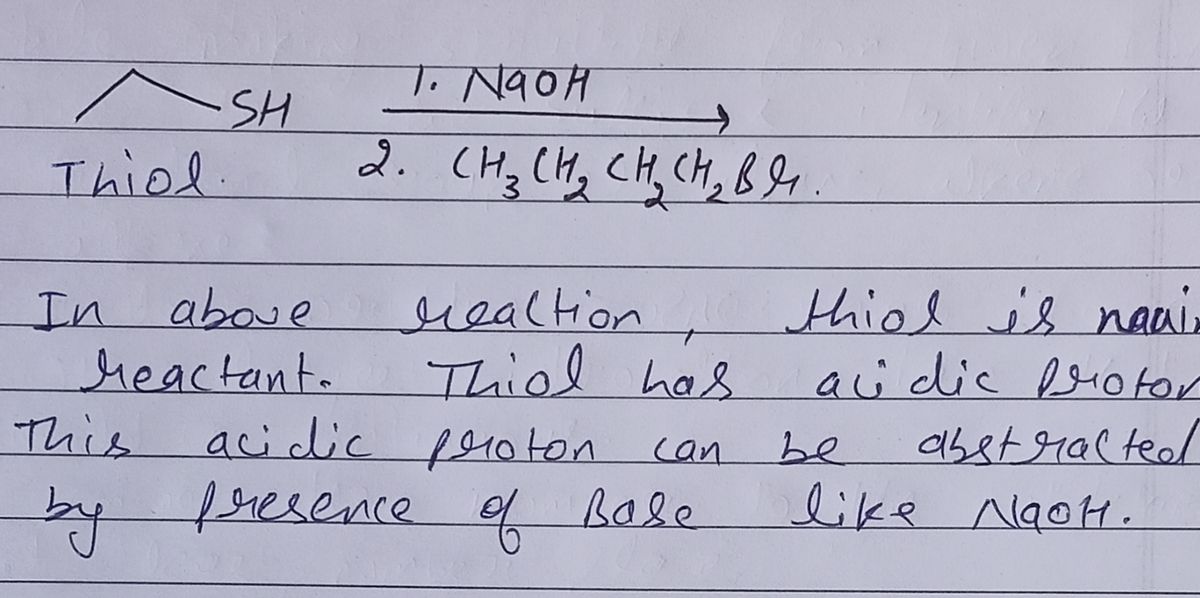 SH 1. NaOH
Thiol. 2. CH3CH2CH2CH2Br.
In above reaction, thiol is
reactant. Thiol has acidic proton
This acidic proton can be abstracted
by presence of Base like NaOH.